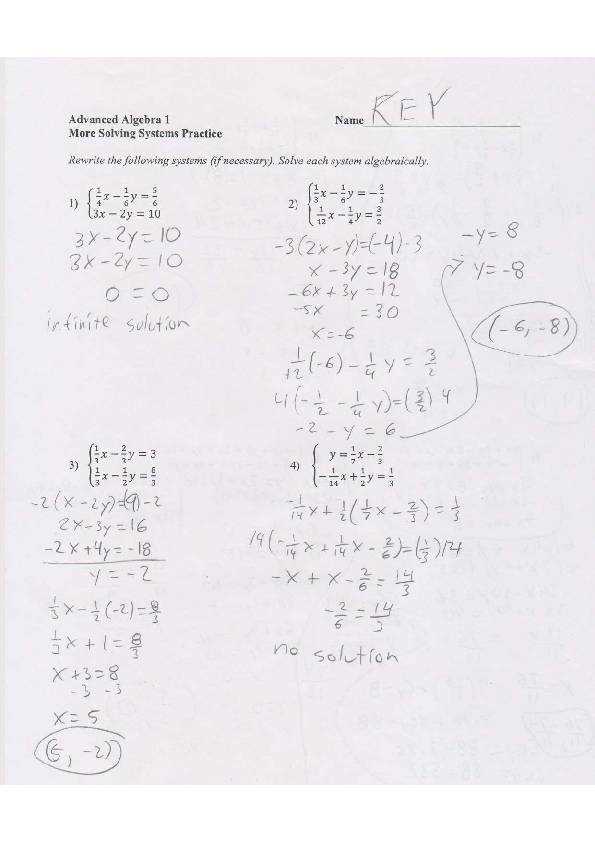 Advanced Algebra 1
Name KEY
More Solving Systems Practice
Rewrite the following systems (if necessary). Solve each system algebraically.
1) { 1/4 x − 1/6 y = 5/6
3x − 2y = 10
3x − 2y = 10
3x − 2y = 10
0 = 0
infinite solution
2) { 1/3 x − 1/6 y = − 2/3
1/12 x − 1/4 y = 3/2
-3(2x − y)=(−4)·3
x − 3y = 18
−6x + 3y = 12
−5x = 30
x = −6
1/12 (−6) − 1/4 y = 3/2
4(− 1/2 − 1/4 y)=(3/2) 4
−2 − y = 6
−y = 8
y = −8
(−6, −8)
3) { 1/3 x − 2/3 y = 3
1/3 x − 1/2 y = 8/3
−2(x − 2y)=(9)−2
2x − 3y = 16
−2x + 4y = −18
y = −2
1/3 x − 1/2 (−2) = 8/3
1/3 x + 1 = 8/3
x + 3 = 8
−3 −3
x = 5
(5, −2)
4) { y = 1/7 x − 2/3
− 1/14 x + 1/2 y = 1/3
−1/14 x + 1/2 (1/7 x − 2/3) = 1/3
14(− 1/14 x + 1/14 x − 2/6)=(1/3)14
−x + x − 2/6 = 14/3
− 2/6 = 14/3
no solution